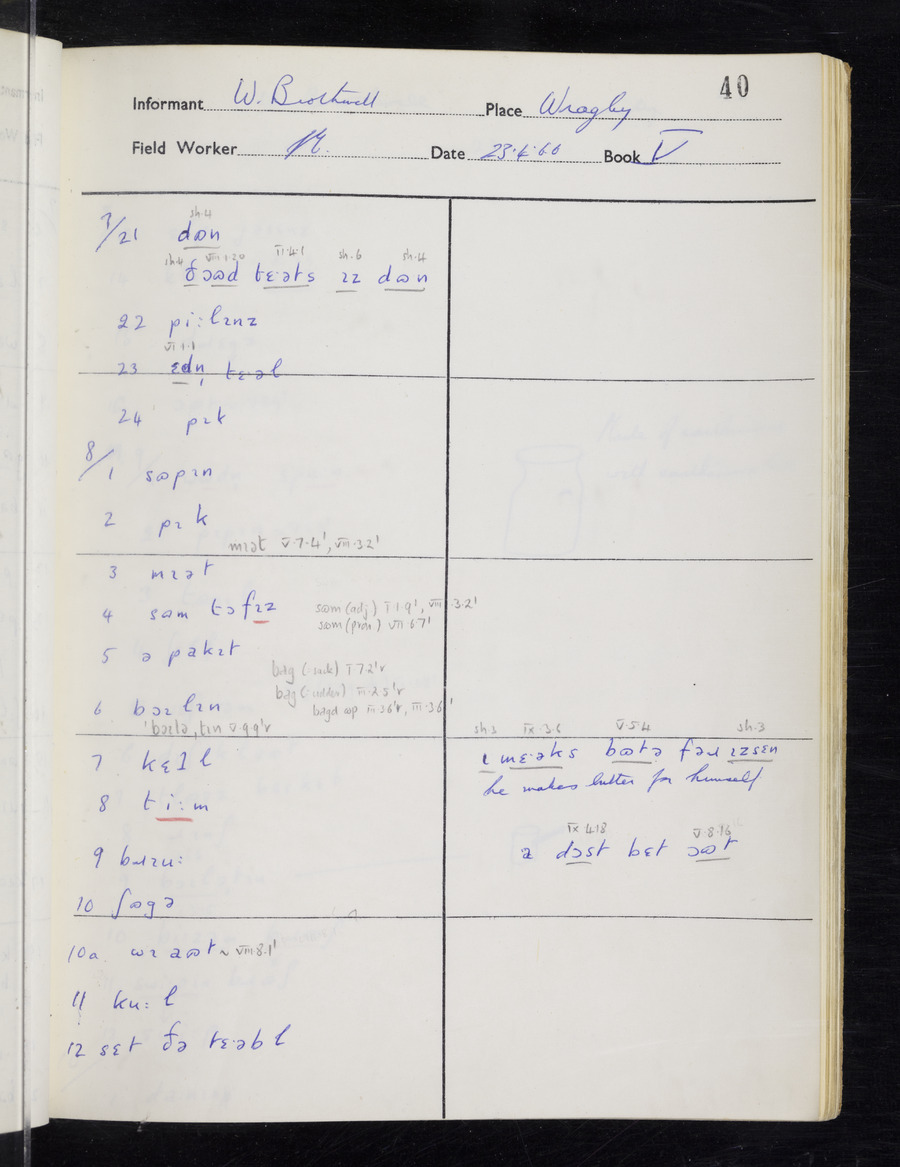 40
Informant W. Brothwell Place Wragby
Field Worker Date 23·4·60 Book V
sh·4
7/21 dɷn
sh·6 VIII·1·20 VI·4·1 sh·6 sh·4
ðɔɷd tɛ·əts ɪz dɷn
22 pi:lɪnz
VI·1·1
23 ɛdn̩ tɛ·əl
24 pɪt
8/1 sɷpɪn
2 pɪk
mɪət V·7·4', VIII·3·2'
3 mɪət
4 sɷm təfɪz
sɷm (adj) I·1·9', VIII·3·2'
sɷm (pron) VII·6·7'
5 ə pakɪt
bag (sack) I 7·2'r
bag (udder) III·2·5'r
bagd ɷp III 3 6'r, III·3·6'
6 bɔɪlɪn
'bɔɪlə, tɪn V·9·9'r
7 kɛtl
8 ti:m
9 bɹɪu:
10 ʃɷgə
10a. wɪ aɷt ~ VIII·8·1'
11 ku:l
12 sɛt ðə tɛ·əbl
sh·3 IX·3·6 V·5·4 sh·3
ɪ mɛ·əks bɷtə fəɹ ɪzsɛn
he makes butter for himself
IX 4·18 V·8·16
a dɔst bɛt ɔɷt